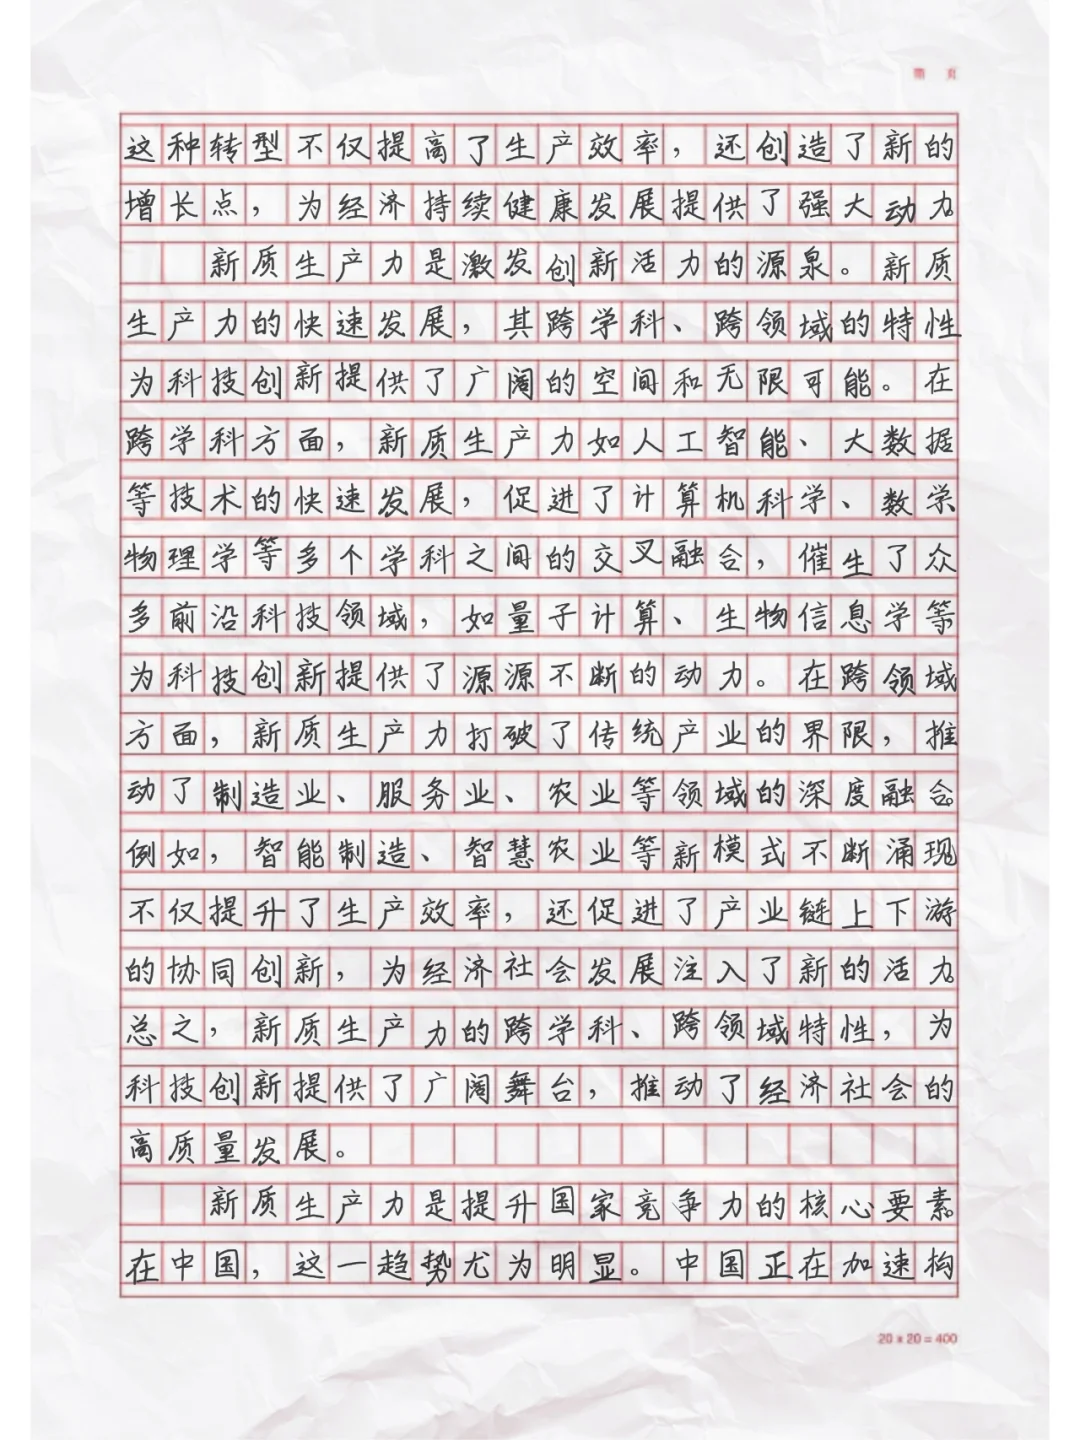 第 页
这种转型不仅提高了生产效率，还创造了新的
增长点，为经济持续健康发展提供了强大动力。
新质生产力是激发创新活力的源泉。新质
生产力的快速发展，其跨学科、跨领域的特性
为科技创新提供了广阔的空间和无限可能。在
跨学科方面，新质生产力如人工智能、大数据
等技术的快速发展，促进了计算机科学、数学
物理学等多个学科之间的交叉融合，催生了众
多前沿科技领域，如量子计算、生物信息学等
为科技创新提供了源源不断的动力。在跨领域
方面，新质生产力打破了传统产业的界限，推
动了制造业、服务业、农业等领域的深度融合。
例如，智能制造、智慧农业等新模式不断涌现
不仅提升了生产效率，还促进了产业链上下游
的协同创新，为经济社会发展注入了新的活力。
总之，新质生产力的跨学科、跨领域特性，为
科技创新提供了广阔舞台，推动了经济社会的
高质量发展。
新质生产力是提升国家竞争力的核心要素。
在中国，这一趋势尤为明显。中国正在加速构
20×20=400